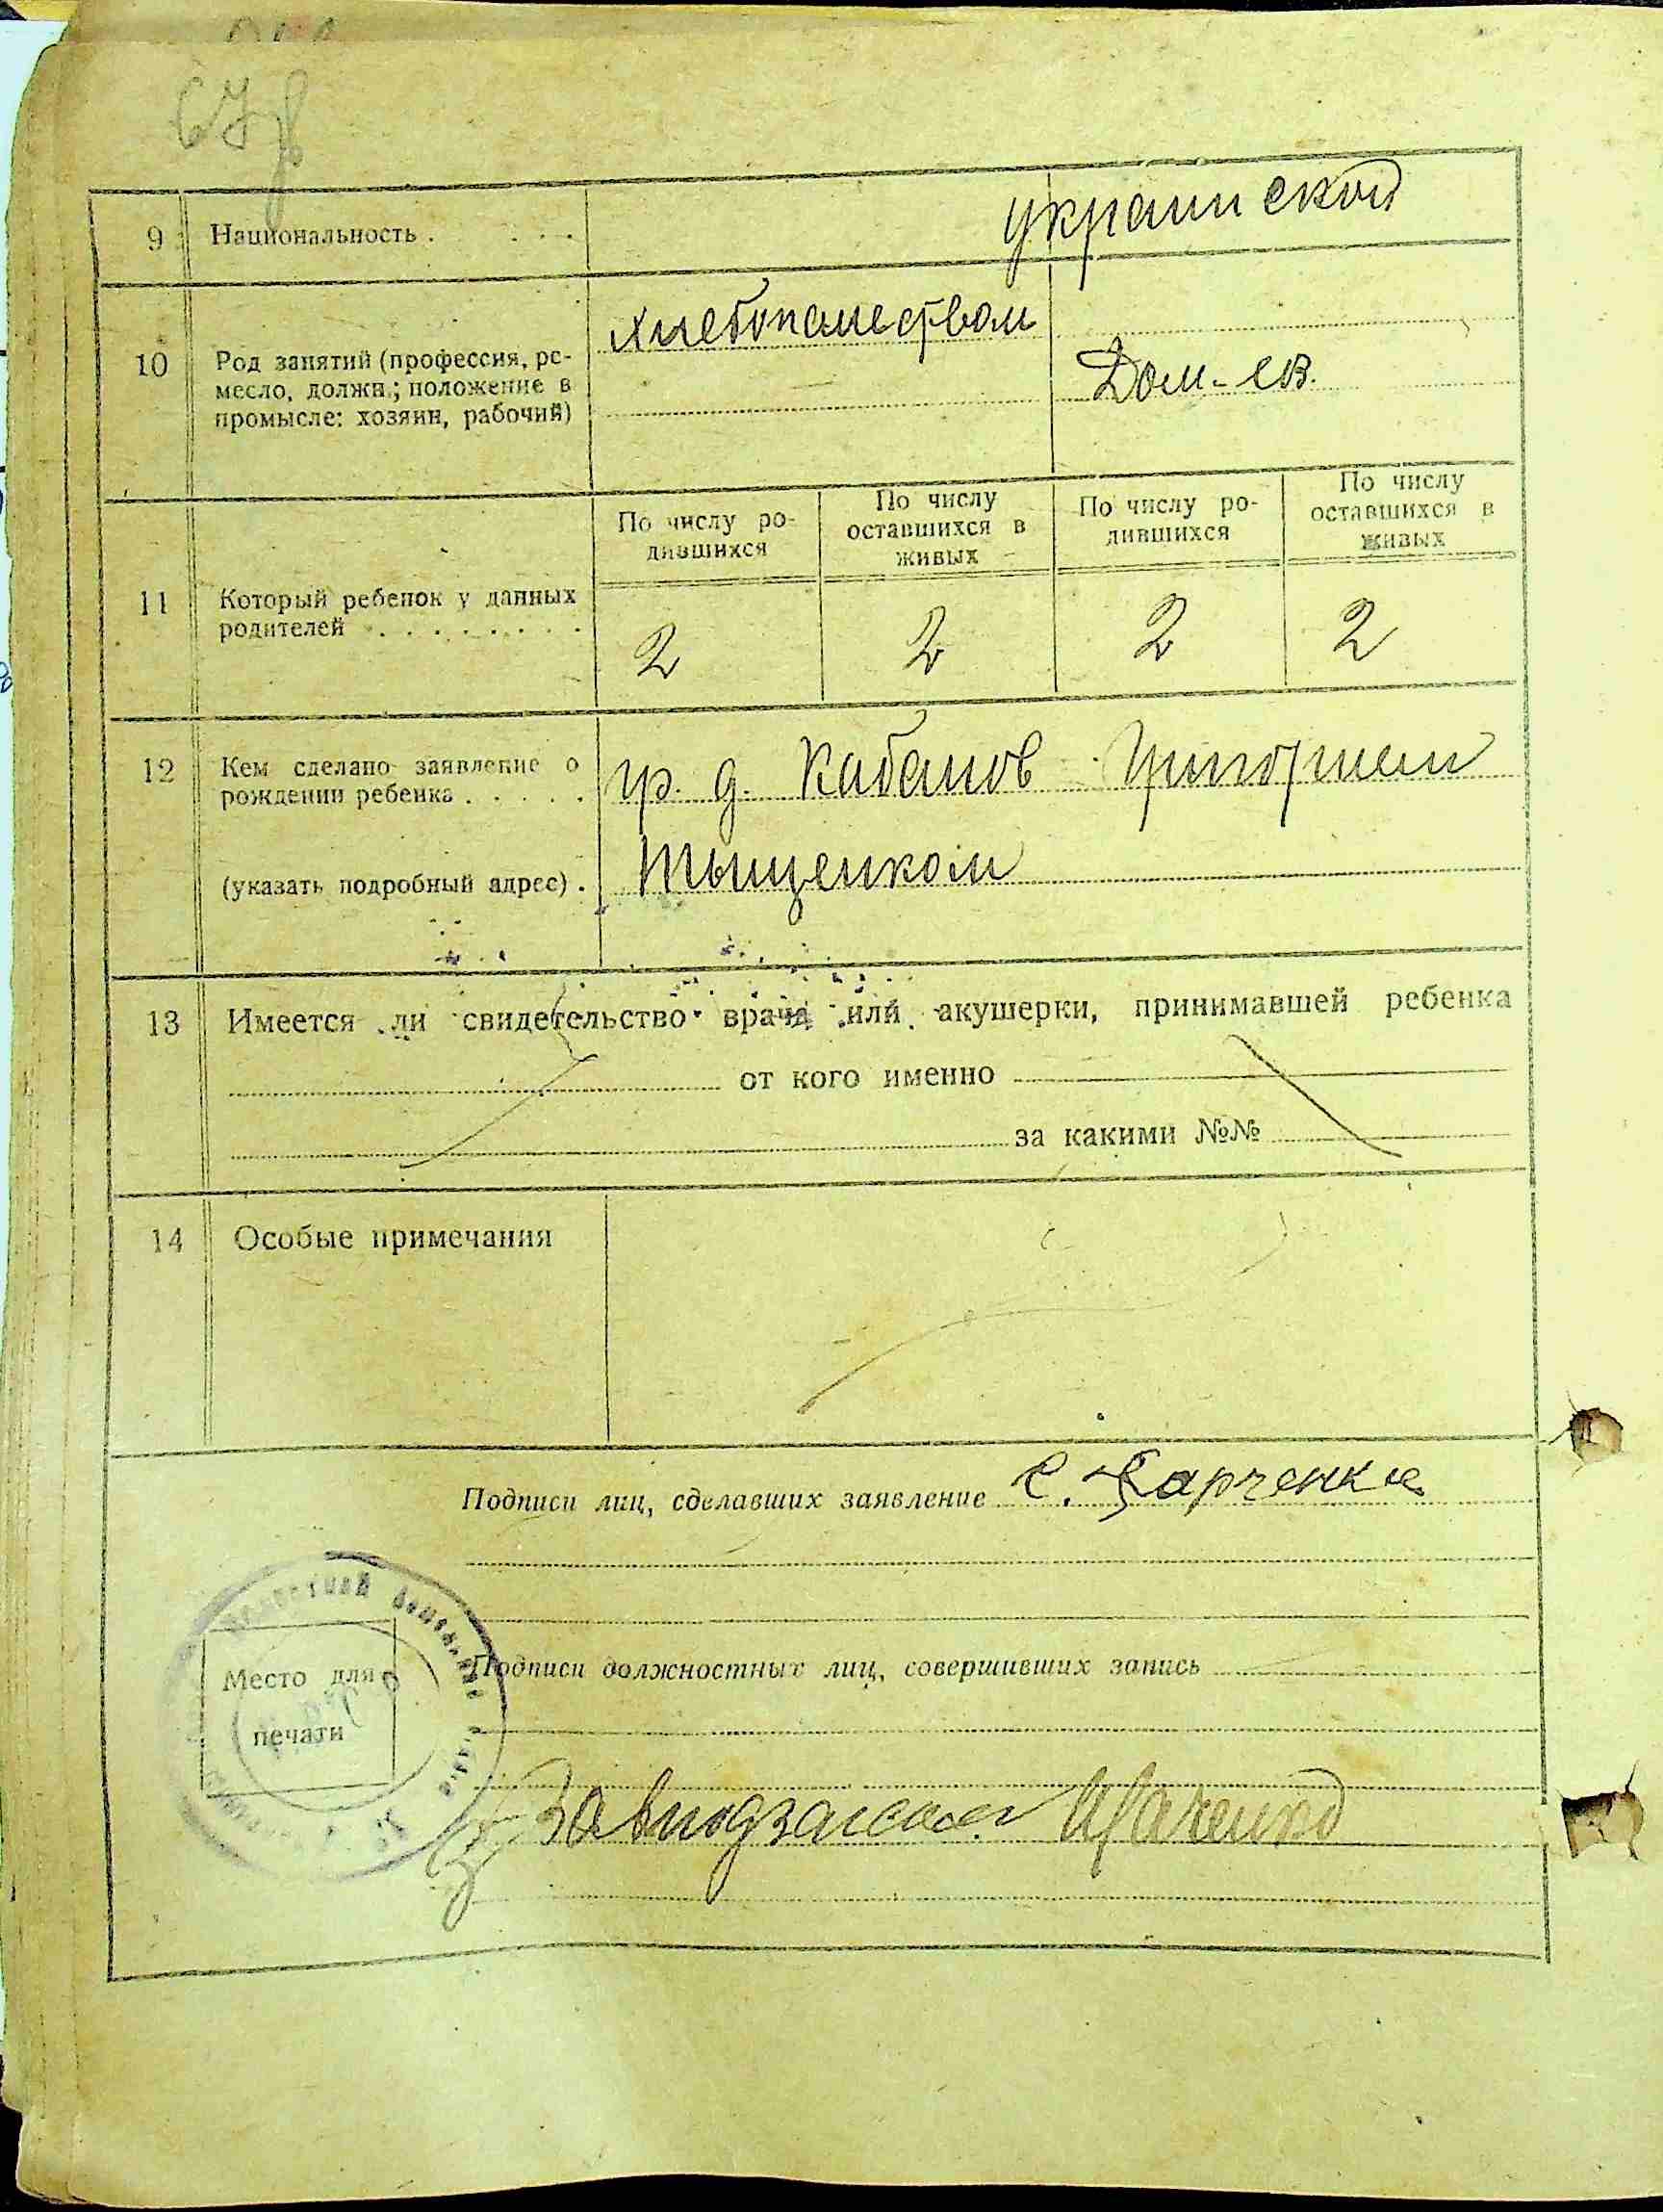 67
9 Национальность . . . . украинской
10 Род занятий (профессия, ре-
месло, должн.; положение в
промысле: хозяин, рабочий)
хлебопашеством
Дом-яя.
По числу ро-
дившихся
По числу
оставшихся в
живых
По числу ро-
дившихся
По числу
оставшихся в
живых
11 Который ребенок у данных
родителей . . . . . . . .
2 2 2 2
12 Кем сделано заявление о
рождении ребенка . . . . .
(указать подробный адрес) .
гр. д. Кабанов Григорием
Тыщенком
13 Имеется ли свидетельство врача или акушерки, принимавшей ребенка
от кого именно
за какими №№
14 Особые примечания
Подписи лиц, сделавших заявление С. Харченко
Место для
печати
Подписи должностных лиц, совершивших запись
Завподзагсом